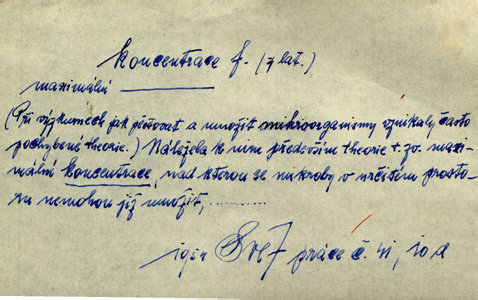 koncentrace f. (z lat.)
maximální
(Při výzkumech jak pěstovat a množit mikroorganismy vznikaly často
pochybené theorie.) Náležela k nim především theorie t. zv. maxi-
mální koncentrace, nad kterou se mikroby v určitém prosto-
ru nemohou již množit, ..........
práce č. 41, 10 d